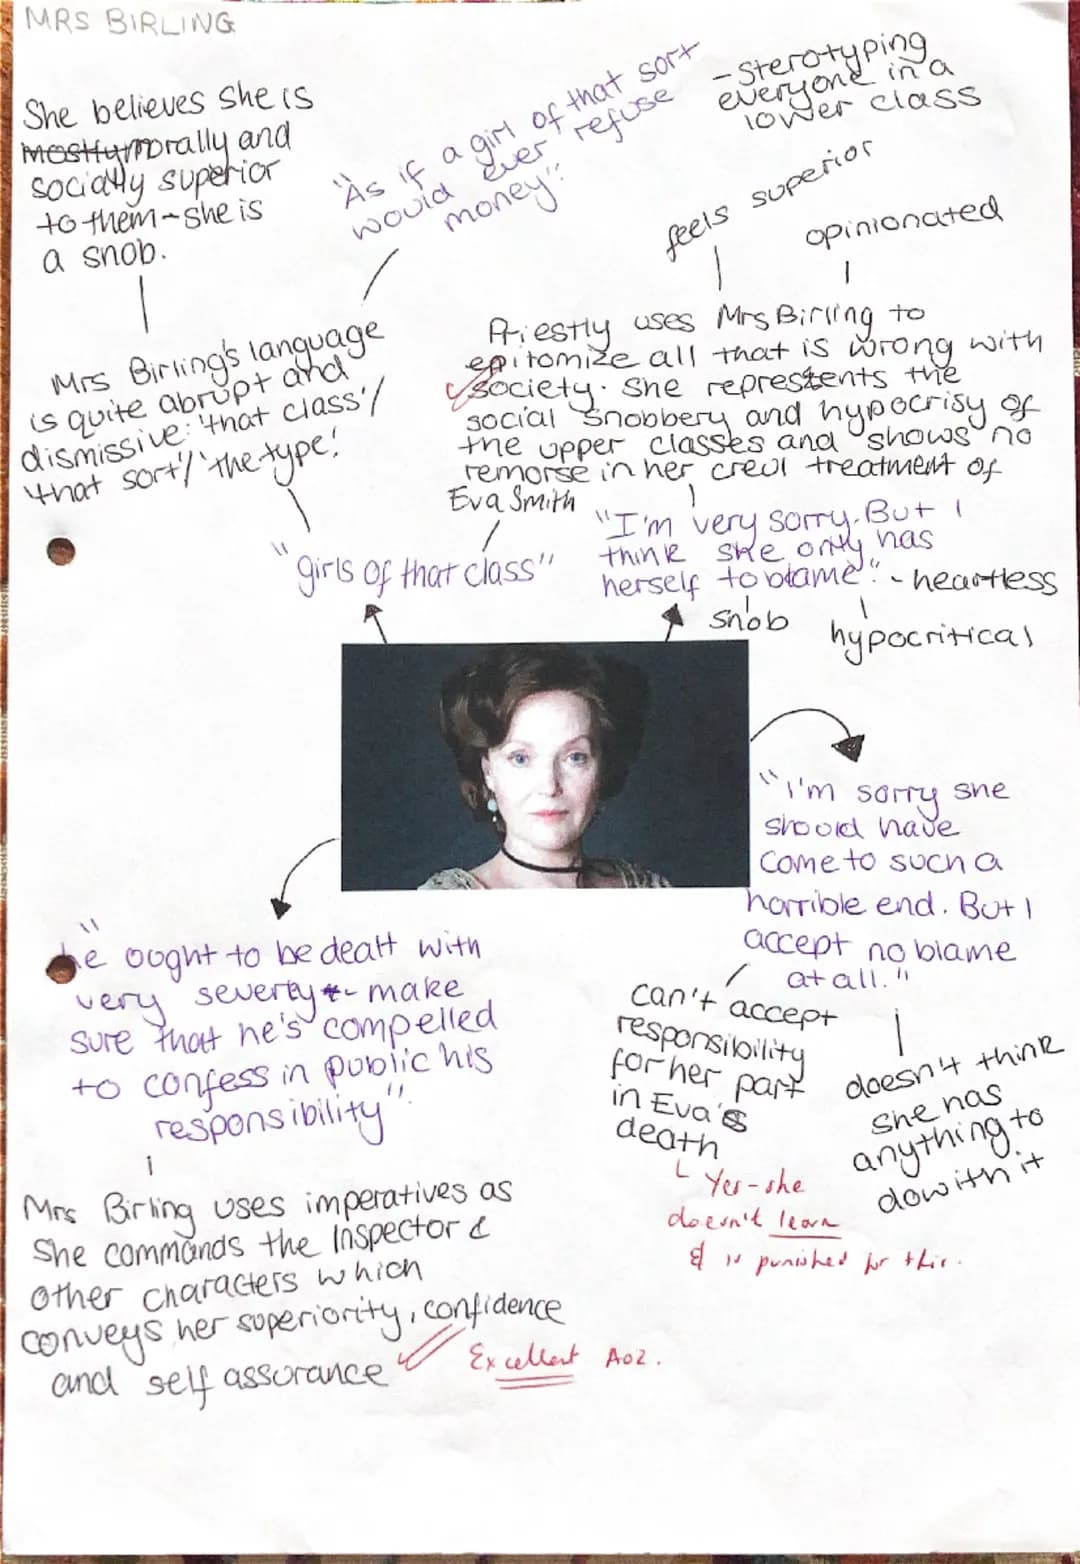 MRS BIRLING
She believes she is
mostly morally and
socially superior
to them - she is
a snob.
"As if a girl of that sort
would ever refuse
money".
- Sterotyping
everyone in a
lower class
feels superior
opinionated
Mrs Birling's language
is quite abrupt and
dismissive: 'that class'/
'that sort'/ 'the type'.
Priestly uses Mrs Birling to
epitomize all that is wrong with
society. She represtents the
social snobbery and hypocrisy of
the upper classes and shows no
remorse in her creul treatment of
Eva Smith
"girls of that class"
"I'm very sorry. But I
think she only has
herself to blame". - heartless
snob
hypocritical
"I'm sorry she
should have
come to such a
horrible end. But I
accept no blame
at all."
can't accept
responsibility
for her part
in Eva's
death
doesn't think
she has
anything to
do with it
Yes - she
doesn't learn
& is punished for this.
"He ought to be dealt with
very severty - make
sure that he's compelled
to confess in public his
responsibility".
Mrs Birling uses imperatives as
she commands the Inspector &
other characters which
conveys her superiority, confidence
and self assurance
Excellent AO2.